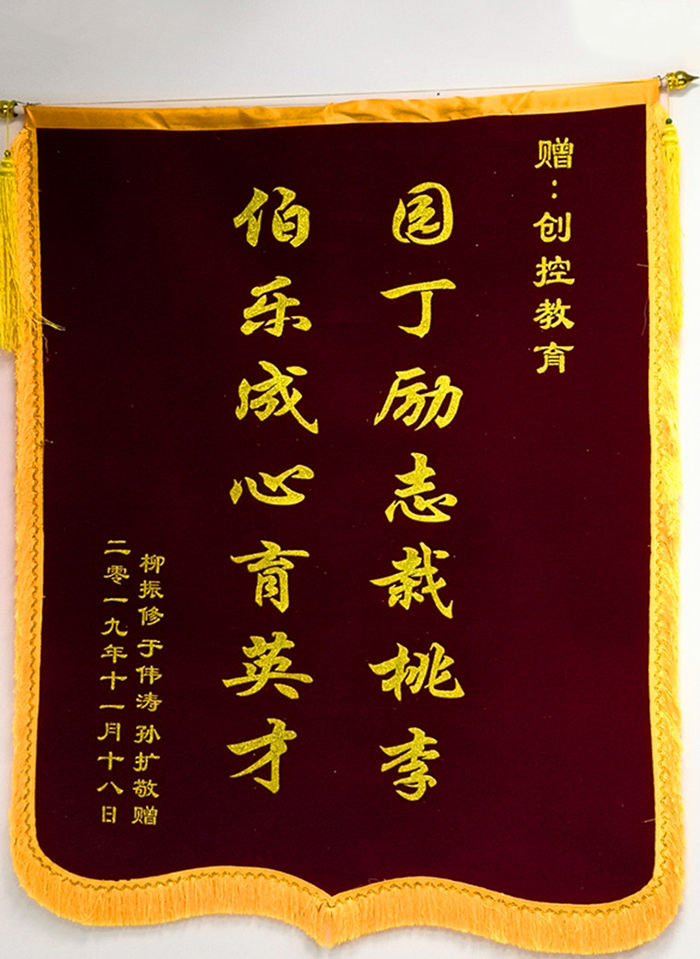 赠：创控教育
园丁励志栽桃李
伯乐成心育英才
柳振修于伟涛孙扩敬赠
二零一九年十一月十八日